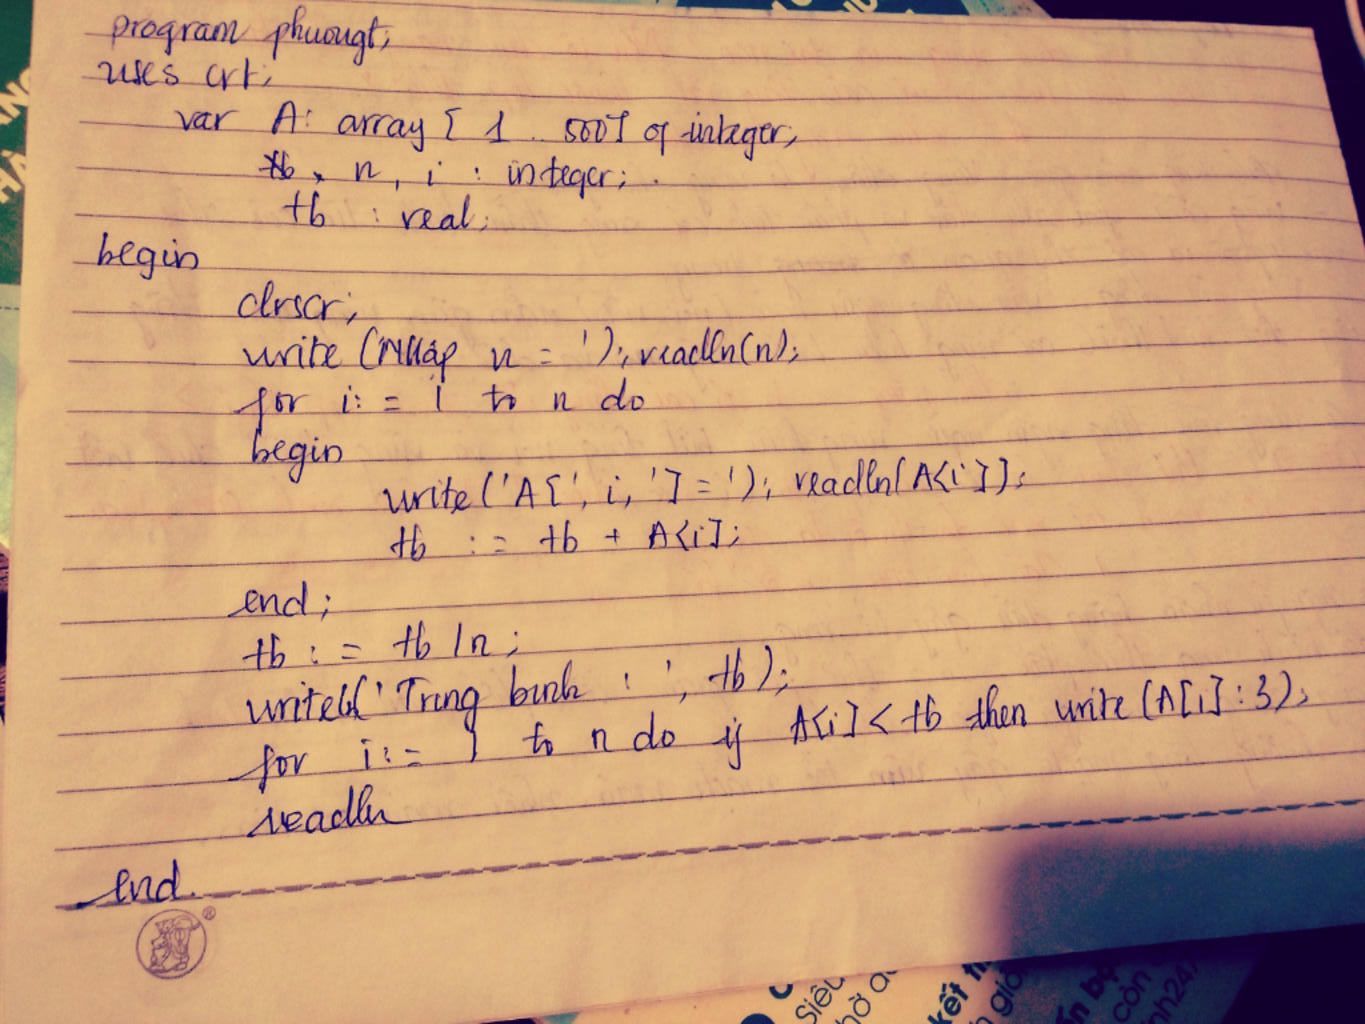 program phuongt;
uses crt;
var A: array [ 1 .. 500] of integer;
n, i : integer;
tb : real;
begin
clrscr;
write (Nhập n = '); readln(n);
for i: = 1 to n do
begin
write ('A[', i, ']= '); readln(A[i]);
tb := tb + A[i];
end;
tb : = tb /n;
writeln(' Trung binh : ', tb);
for i: = 1 to n do if A[i] < tb then write (A[i] : 3);
readln
end.
®
kết
bộ
còn